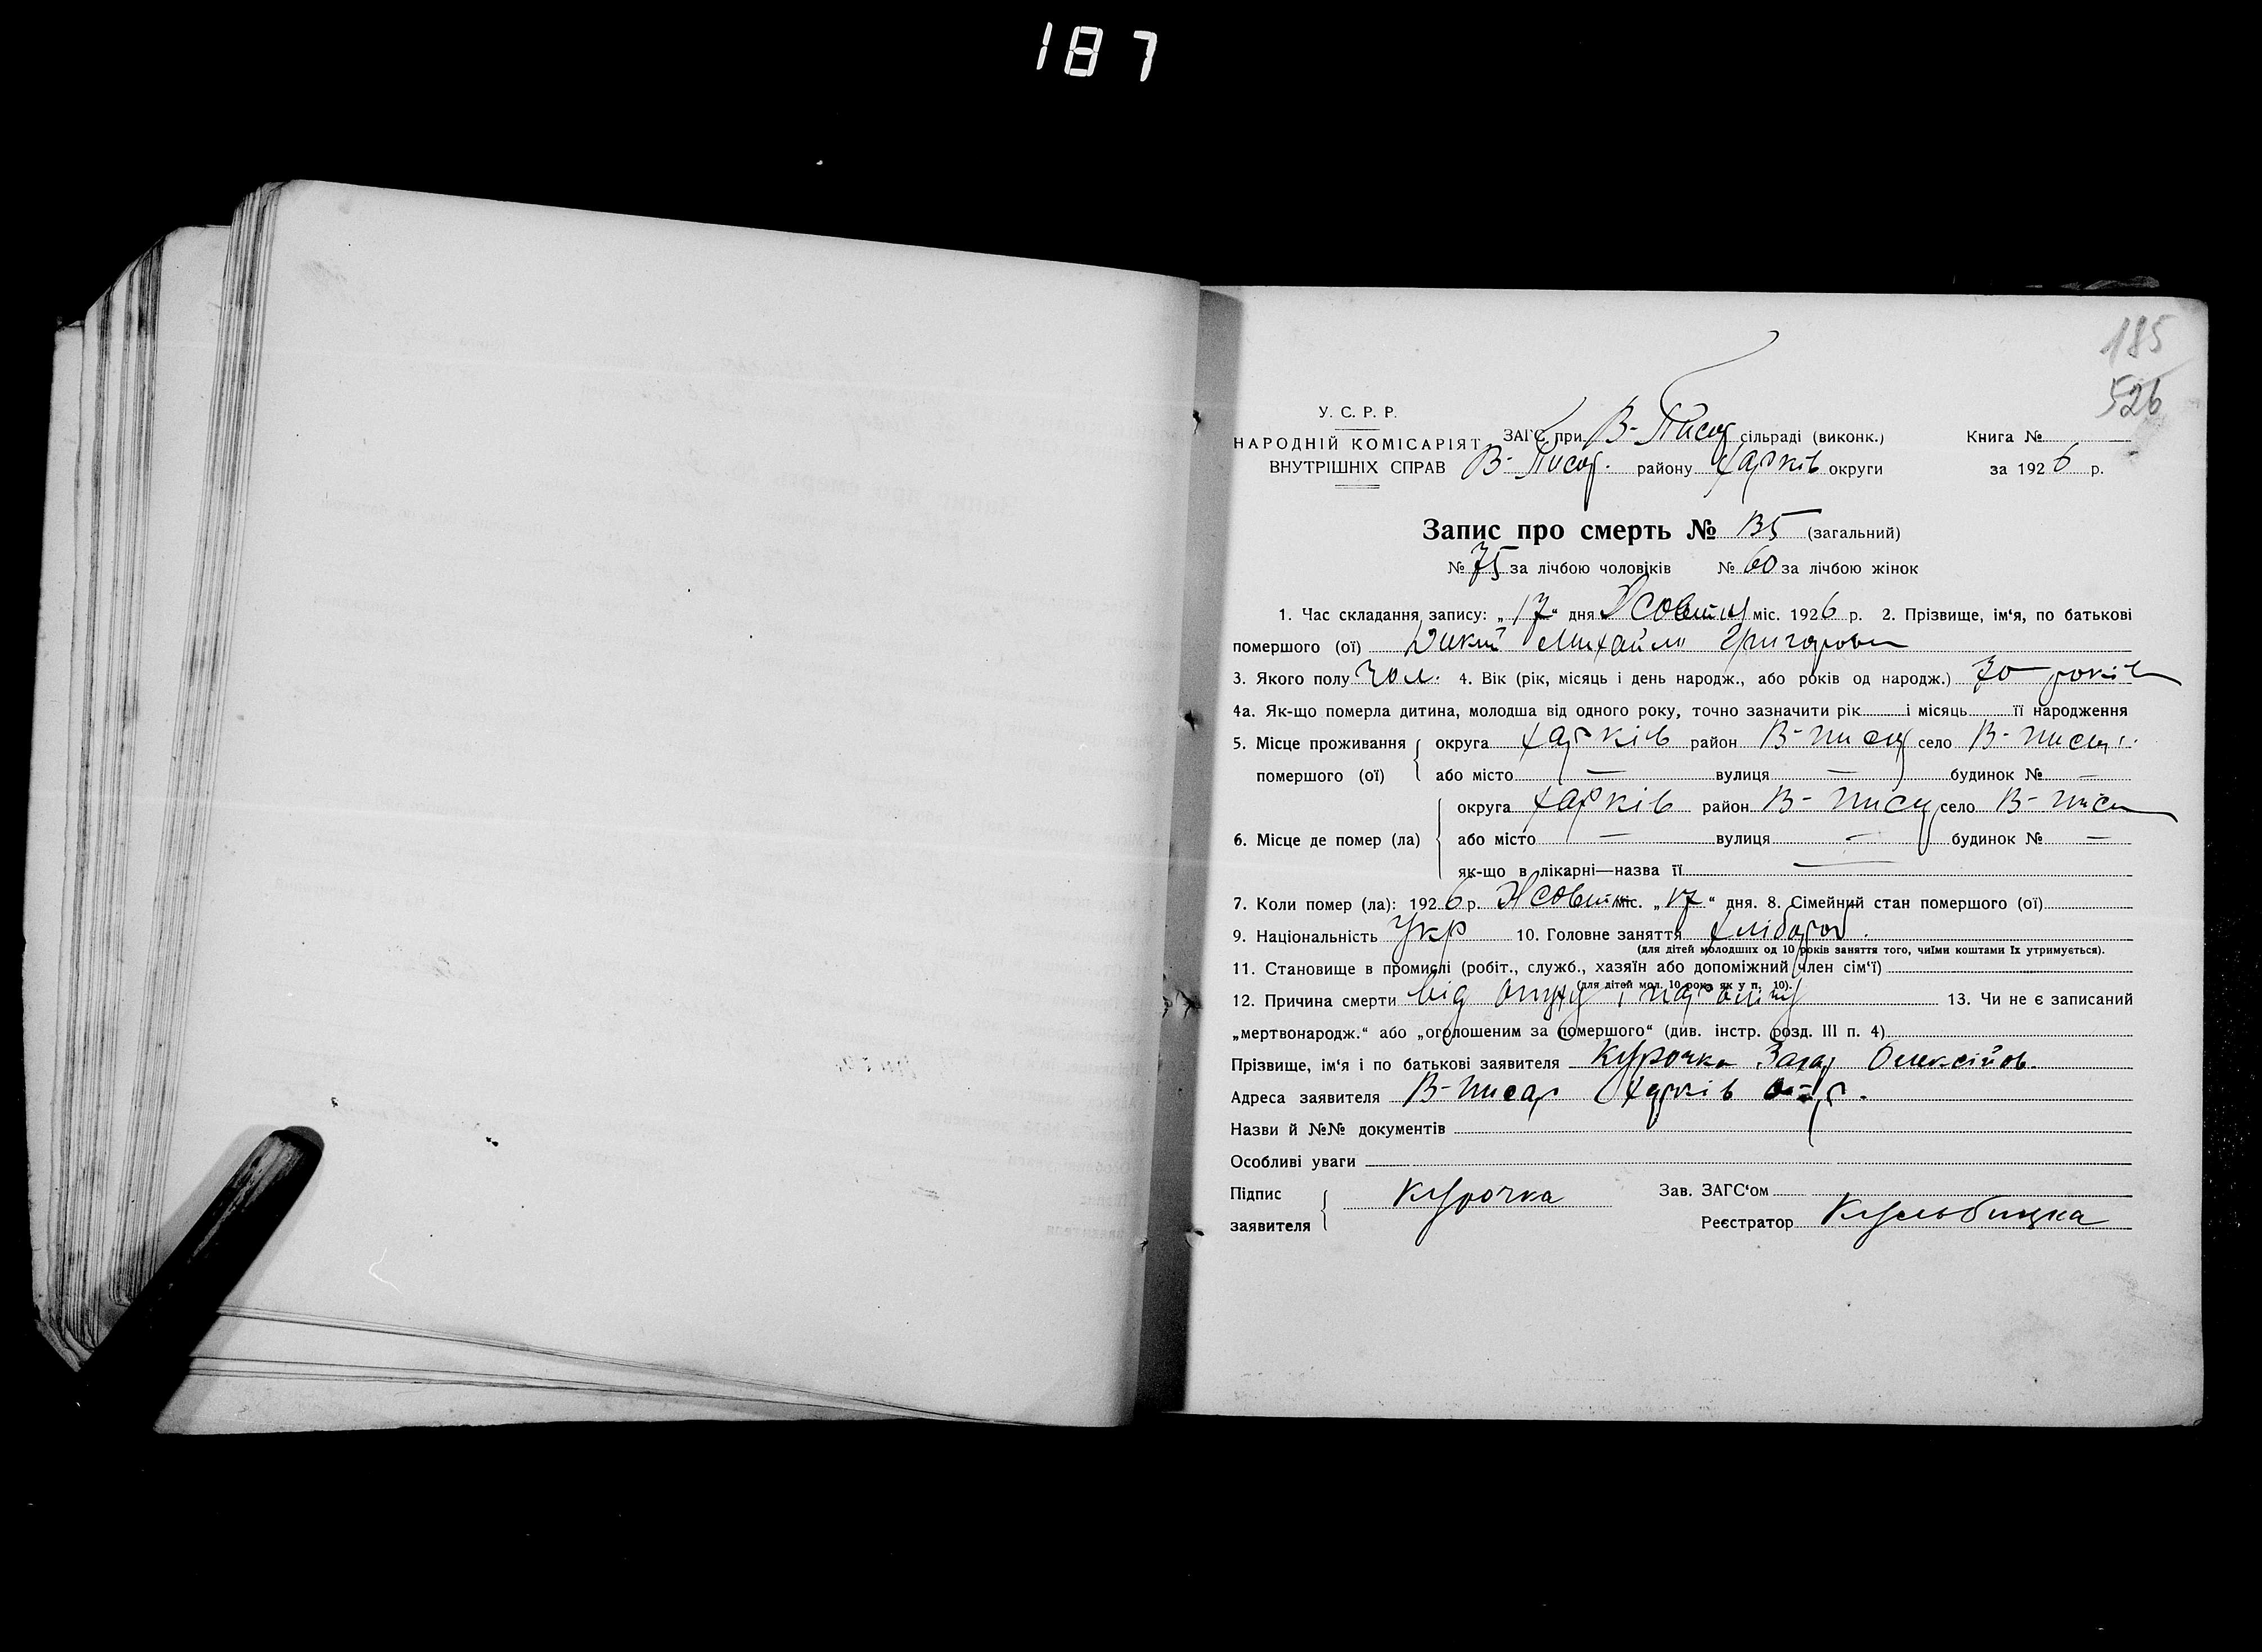 187
185
526
У. С. Р. Р.
НАРОДНІЙ КОМІСАРІЯТ
ВНУТРІШНІХ СПРАВ
ЗАГС при В- Писар сільраді (виконк.)
В- Писар. району Харків округи
Книга №
за 1926 р.
Запис про смерть № 135 (загальний)
№ 75 за лічбою чоловіків № 60 за лічбою жінок
1. Час складання запису: „17“ дня Жовтня міс. 1926 р. 2. Прізвище, ім‘я, по батькові
помершого (ої) Дикий Михайло Григоров
3. Якого полу чол. 4. Вік (рік, місяць і день народж., або років од народж.) 70 років
4а. Як-що померла дитина, молодша від одного року, точно зазначити рік і місяць її народження
5. Місце проживання помершого (ої) округа Харків район В- писар село В- писар.
або місто — вулиця — будинок № —
6. Місце де помер (ла) округа Харків район В- писар село В- писар
або місто — вулиця — будинок № —
як-що в лікарні—назва її —
7. Коли помер (ла): 1926 р. Жовтня міс. „17“ дня. 8. Сімейний стан помершого (ої)
9. Національність Укр 10. Головне заняття Хлібороб.
(для дітей молодших од 10 років заняття того, чиїми коштами їх утримується).
11. Становище в промислі (робіт., служб., хазяїн або допоміжний член сім‘ї)
(для дітей мол. 10 рок. як у п. 10).
12. Причина смерти від 13. Чи не є записаний
„мертвонародж.“ або „оголошеним за помершого“ (див. інстр. розд. III п. 4)
Прізвище, ім‘я і по батькові заявителя Курочка Захар Олексійов.
Адреса заявителя В- писар Харків окр.
Назви й №№ документів
Особливі уваги
Підпис заявителя Курочка
Зав. ЗАГС‘ом
Реєстратор